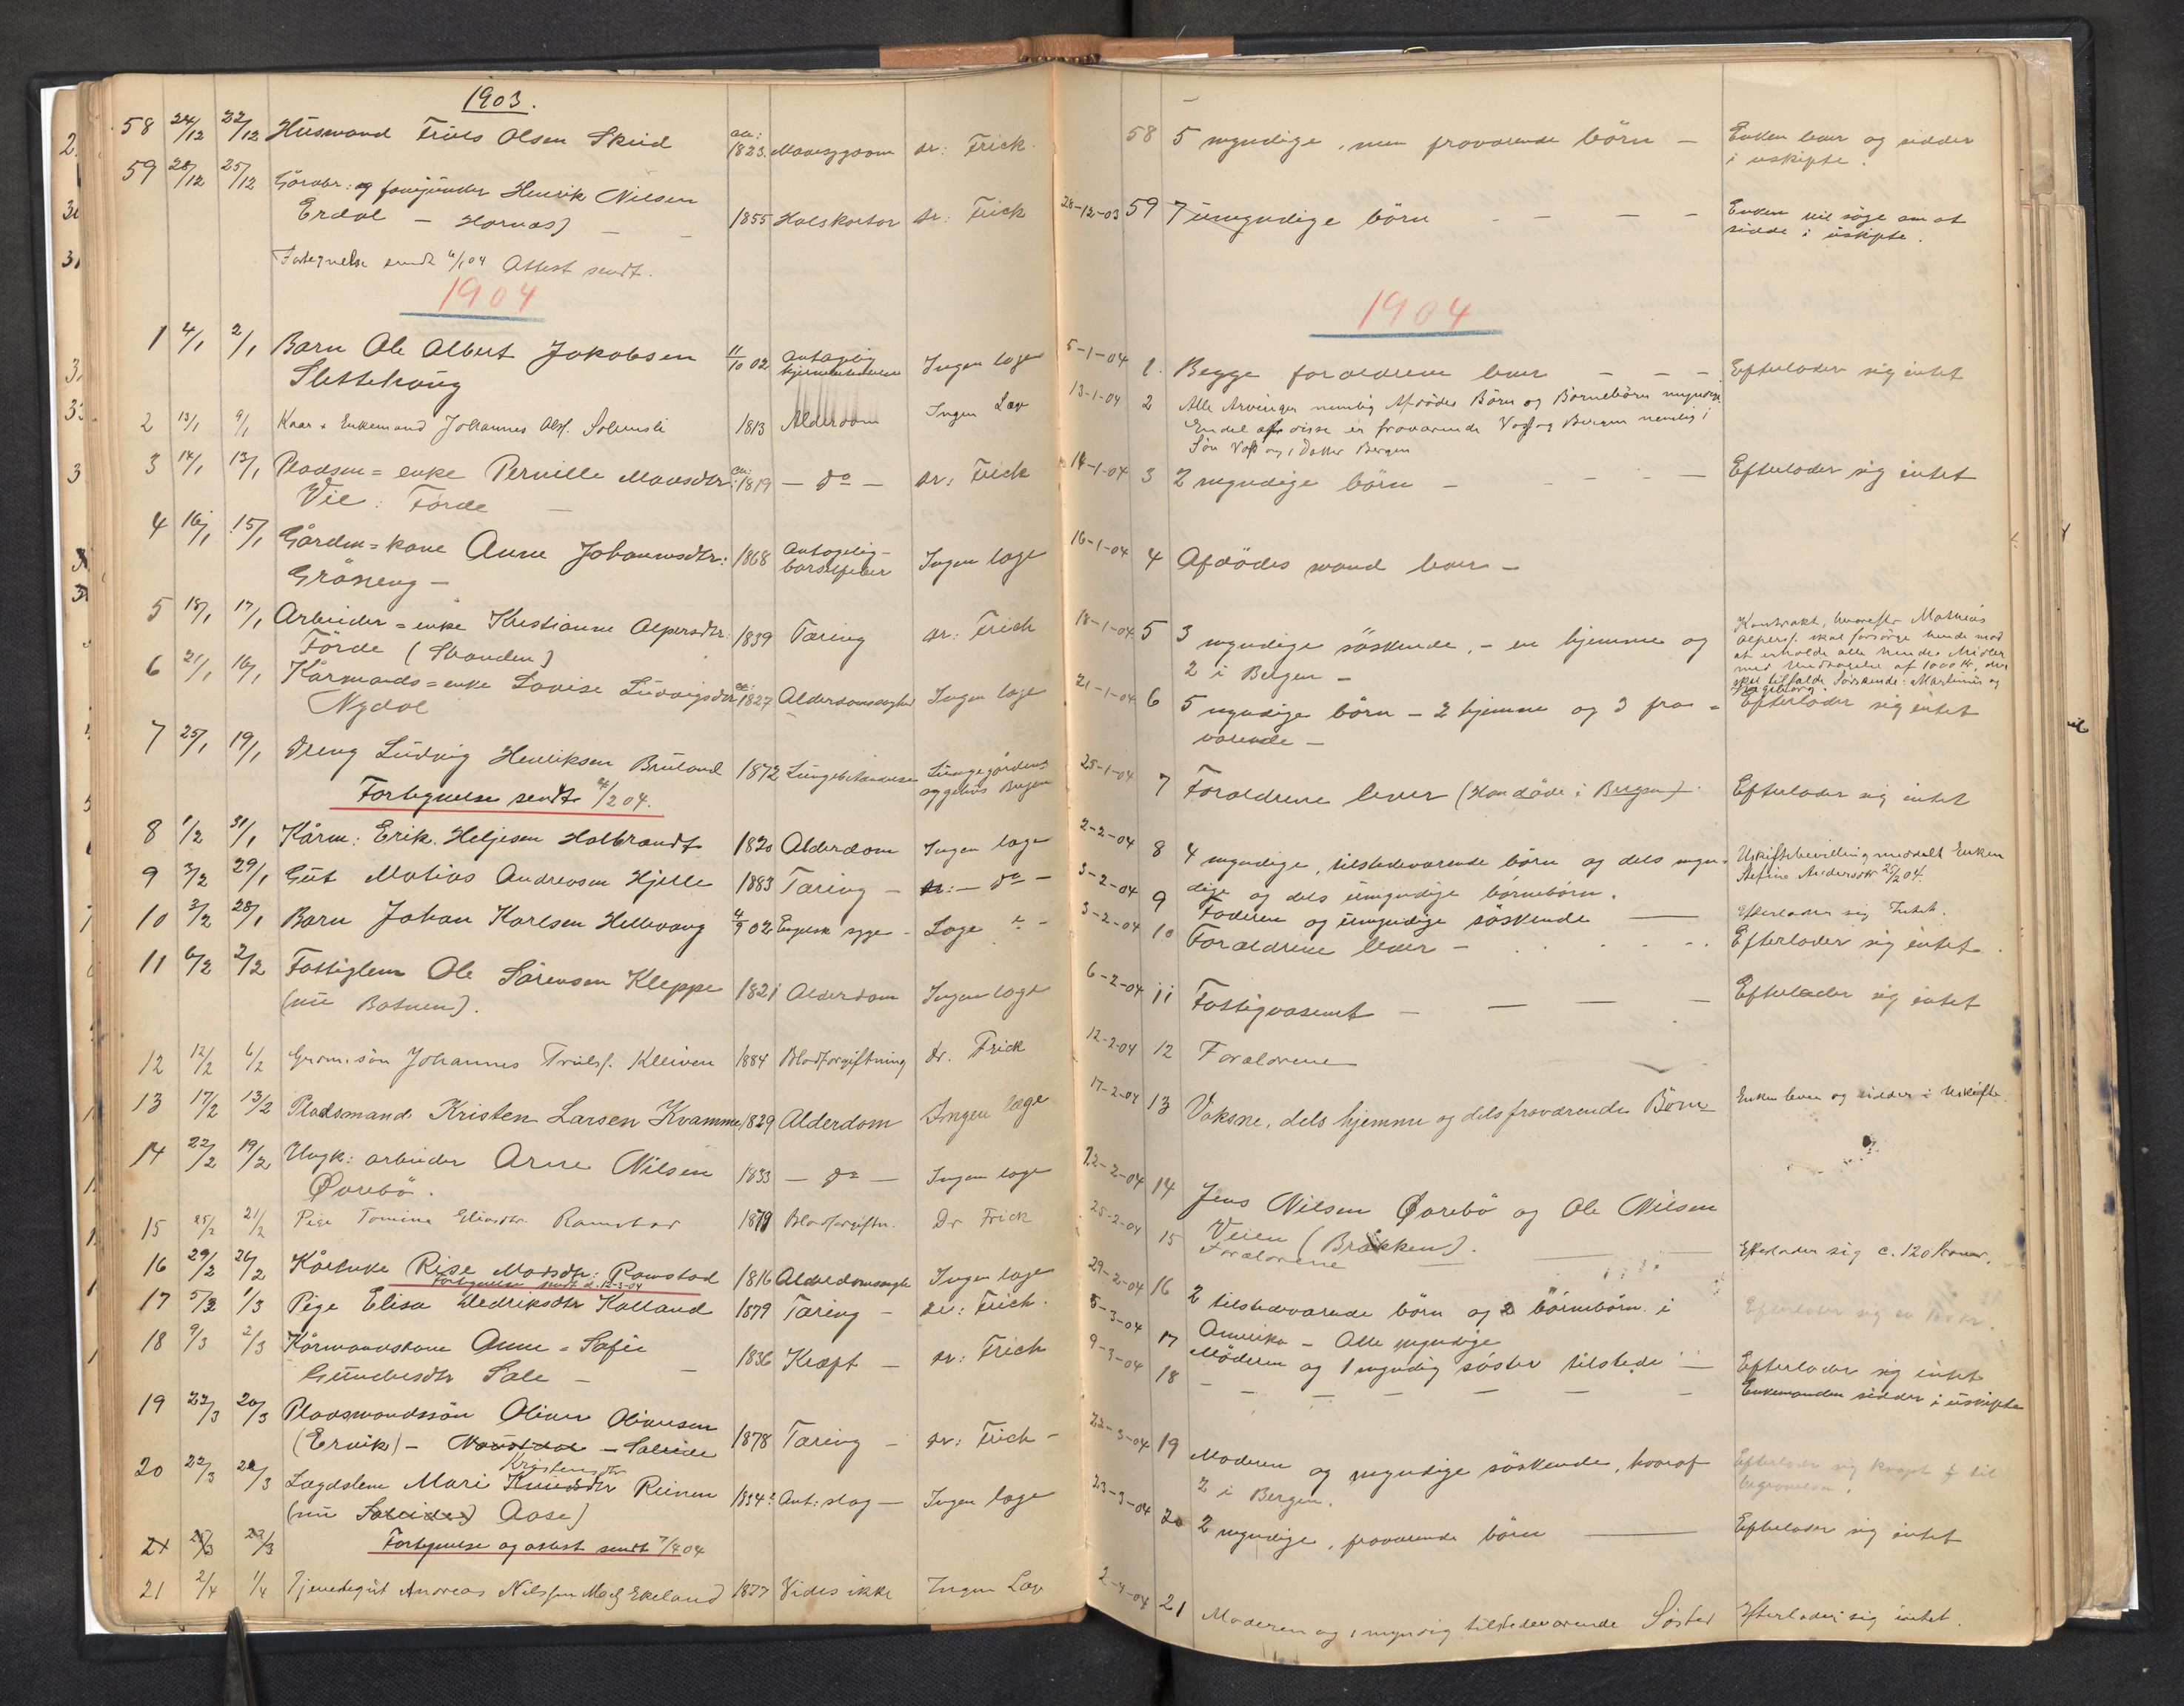 1903.
58 24/12 22/12 Husmand Truls Olsen Skeid ca: 1823. dr: Frick
59 28/12 25/12 Gårdbr: og Henrik Nilsen
Erdal — Hornæs) — — 1855 Halskatar dr: Frick
Fortegnelse sendt 6/1 04 Attest sendt.
1904
1 4/1 2/1 Barn Ole Albert Jakobsen 11/10 02 Antagelig Ingen læge
Slettehaug
2 13/1 9/1 Kaar & Enkemand Johannes Olsf. Solemsli 1813 Alderdom Ingen Læg
3 14/1 13/1 Pladsm = enke Pernille Monsdtr: ca: 1819 — do — dr: Frick
Vie: Førde —
4 16/1 15/1 Gårdm = kone Anne Johannesdtr: 1868 Antagelig - barselfeber Ingen læge
Gröneng —
5 18/1 17/1 Arbeider = enke Kristianne Alpersdtr: 1839 Tæring dr: Frich
Förde (Stranden)
6 21/1 16/1 Kårmands = enke Lovise Ludvigsdtr ca: 1827 Alderdomssvaghed Ingen læge
Nydal
7 25/1 19/1 Dreng Ludvig Henriksen Bruland 1872 Lungebetændelse Lungegårdens sygehus Bergen
Fortegnelse sendt /2 04.
8 1/2 31/1 Kårm: Erik Heljesen Halbrandt 1820 Alderdom Ingen læge
9 3/2 29/1 Gut Matias Andreasen Hjelle 1883 Tæring — dr: — do —
10 3/2 28/1 Barn Johan Karlsen Hellevang 4/9 02 Engelsk syge - Læge
11 6/2 2/2 Fattiglem Ole Sörensen Kleppe 1821 Alderdom Ingen læge
(nu Botnen).
12 12/2 6/2 Grdm. sön Johannes Trulsf. Kleiven 1884 Blodforgiftning Dr. Frick
13 17/2 13/2 Pladsmand Kristen Larsen Kvamme 1829 Alderdom Ingen læge
14 22/2 19/2 Ungk: arbeider Arne Nilsen 1833 — do — Ingen læge
Øvrebö.
15 25/2 21/2 Pige Tomine Eliasdtr. Ramstad 1879 Blodforgiftn. Dr Frick
16 29/2 26/2 Kårenke Rise Madsdtr: Ramstad 1816 Alderdomssvaghe Ingen læge
Fortegnelse sendt d. 12-3-04
17 5/3 1/3 Pige Elisa Diedriksdtr Kalland 1879 Tæring — dr: Frich.
18 9/3 2/3 Kårmandskone Anne = Sofie 1836 Kræft — dr: Frich
Gundersdtr Sale — —
19 22/3 20/3 Pladsmandssön Oliver Oliversen
(Ervik) — Naustdal — Solheim 1878 Tæring — dr: Frich —
Kristensdtr
20 22/3 22/3 Lægdslem Mari Knudsdtr Reinen 1834? Ant: slag — Ingen læge
(nu Aase)
21 26/3 23/3 Fortegnelse og attest sendt 7/4 04
21 2/4 1/4 Tjenestegut Andreas Nilssen Ekeland 1877 Vides ikke Ingen Læg
58 5 myndige, men fraværende börn — Enken lever og sidder
i uskifte.
28-12-03 59 7 umyndige börn — — — Enken vil söge om at
sidde i uskifte.
1904
5-1-04 1. Begge forældrene lever — — — Efterlader sig intet
13-1-04 2 Alle Arvinger nemlig Afdödes Börn og Börnebörn myndige.
Endel af disse er fraværende Voss og Bergen nemlig 1
Sön Voss og 1 Datter Bergen
14-1-04 3 2 myndige börn — — — Efterlader sig intet
16-1-04 4 Afdödes mand lever —
18-1-04 5 3 myndige söskende, — en hjemme og
2 i Bergen —
Kontrakt, hvorefter Mathias
Alpersf. skal forsörge hende mod
at erholde alle hendes Midler
med Undtagelse af 1000 Kr, der
skal tilfalde Söskende: Martinus og
Ingeborg.
21-1-04 6 5 myndige börn — 2 hjemme og 3 fra = Efterlader sig intet
værende —
25-1-04 7 Forældrene lever (Han döde i Bergen). Efterlader sig intet
2-2-04 8 4 myndige, tilstedeværende börn og dels myn= Uskiftebevilling meddelt Enken
dige og dels umyndige börnebörn. Andersdtr 25/2 04.
3-2-04 9 Faderen og umyndige söskende — Efterlader sig Intet.
3-2-04 10 Forældrene lever — Efterlader sig intet.
6-2-04 11 Fattigvæsenet — — — Efterlader sig intet
12-2-04 12 Forældrene
17-2-04 13 Voksne, dels hjemme og dels fraværende Börn Enken lever og sidder i Uskifte.
22-2-04 14 Jens Nilsen Øvrebö og Ole Nilsen
Veien (Brækken).
25-2-04 15 Forældrene — Efterlader sig c. 120 Kroner.
29-2-04 16 2 tilstedeværende börn og 2 börnebörn i Efterlader sig ca 100 kr.
Amerika — Alle myndige
5-3-04 17 Möderen og 1 myndig söster tilstede — Efterlader sig intet
9-3-04 18 — — — — — — Enkemanden sidder i uskifte
22-3-04 19 Moderen og myndige söskende, hvoraf Efterlader sig knapt til
2 i Bergen. begravelsen.
23-3-04 20 2 myndige, fraværende börn — Efterlader sig intet
2-4-04 21 Moderen og 1 myndig tilstedeværende Söster Efterlader sig intet.